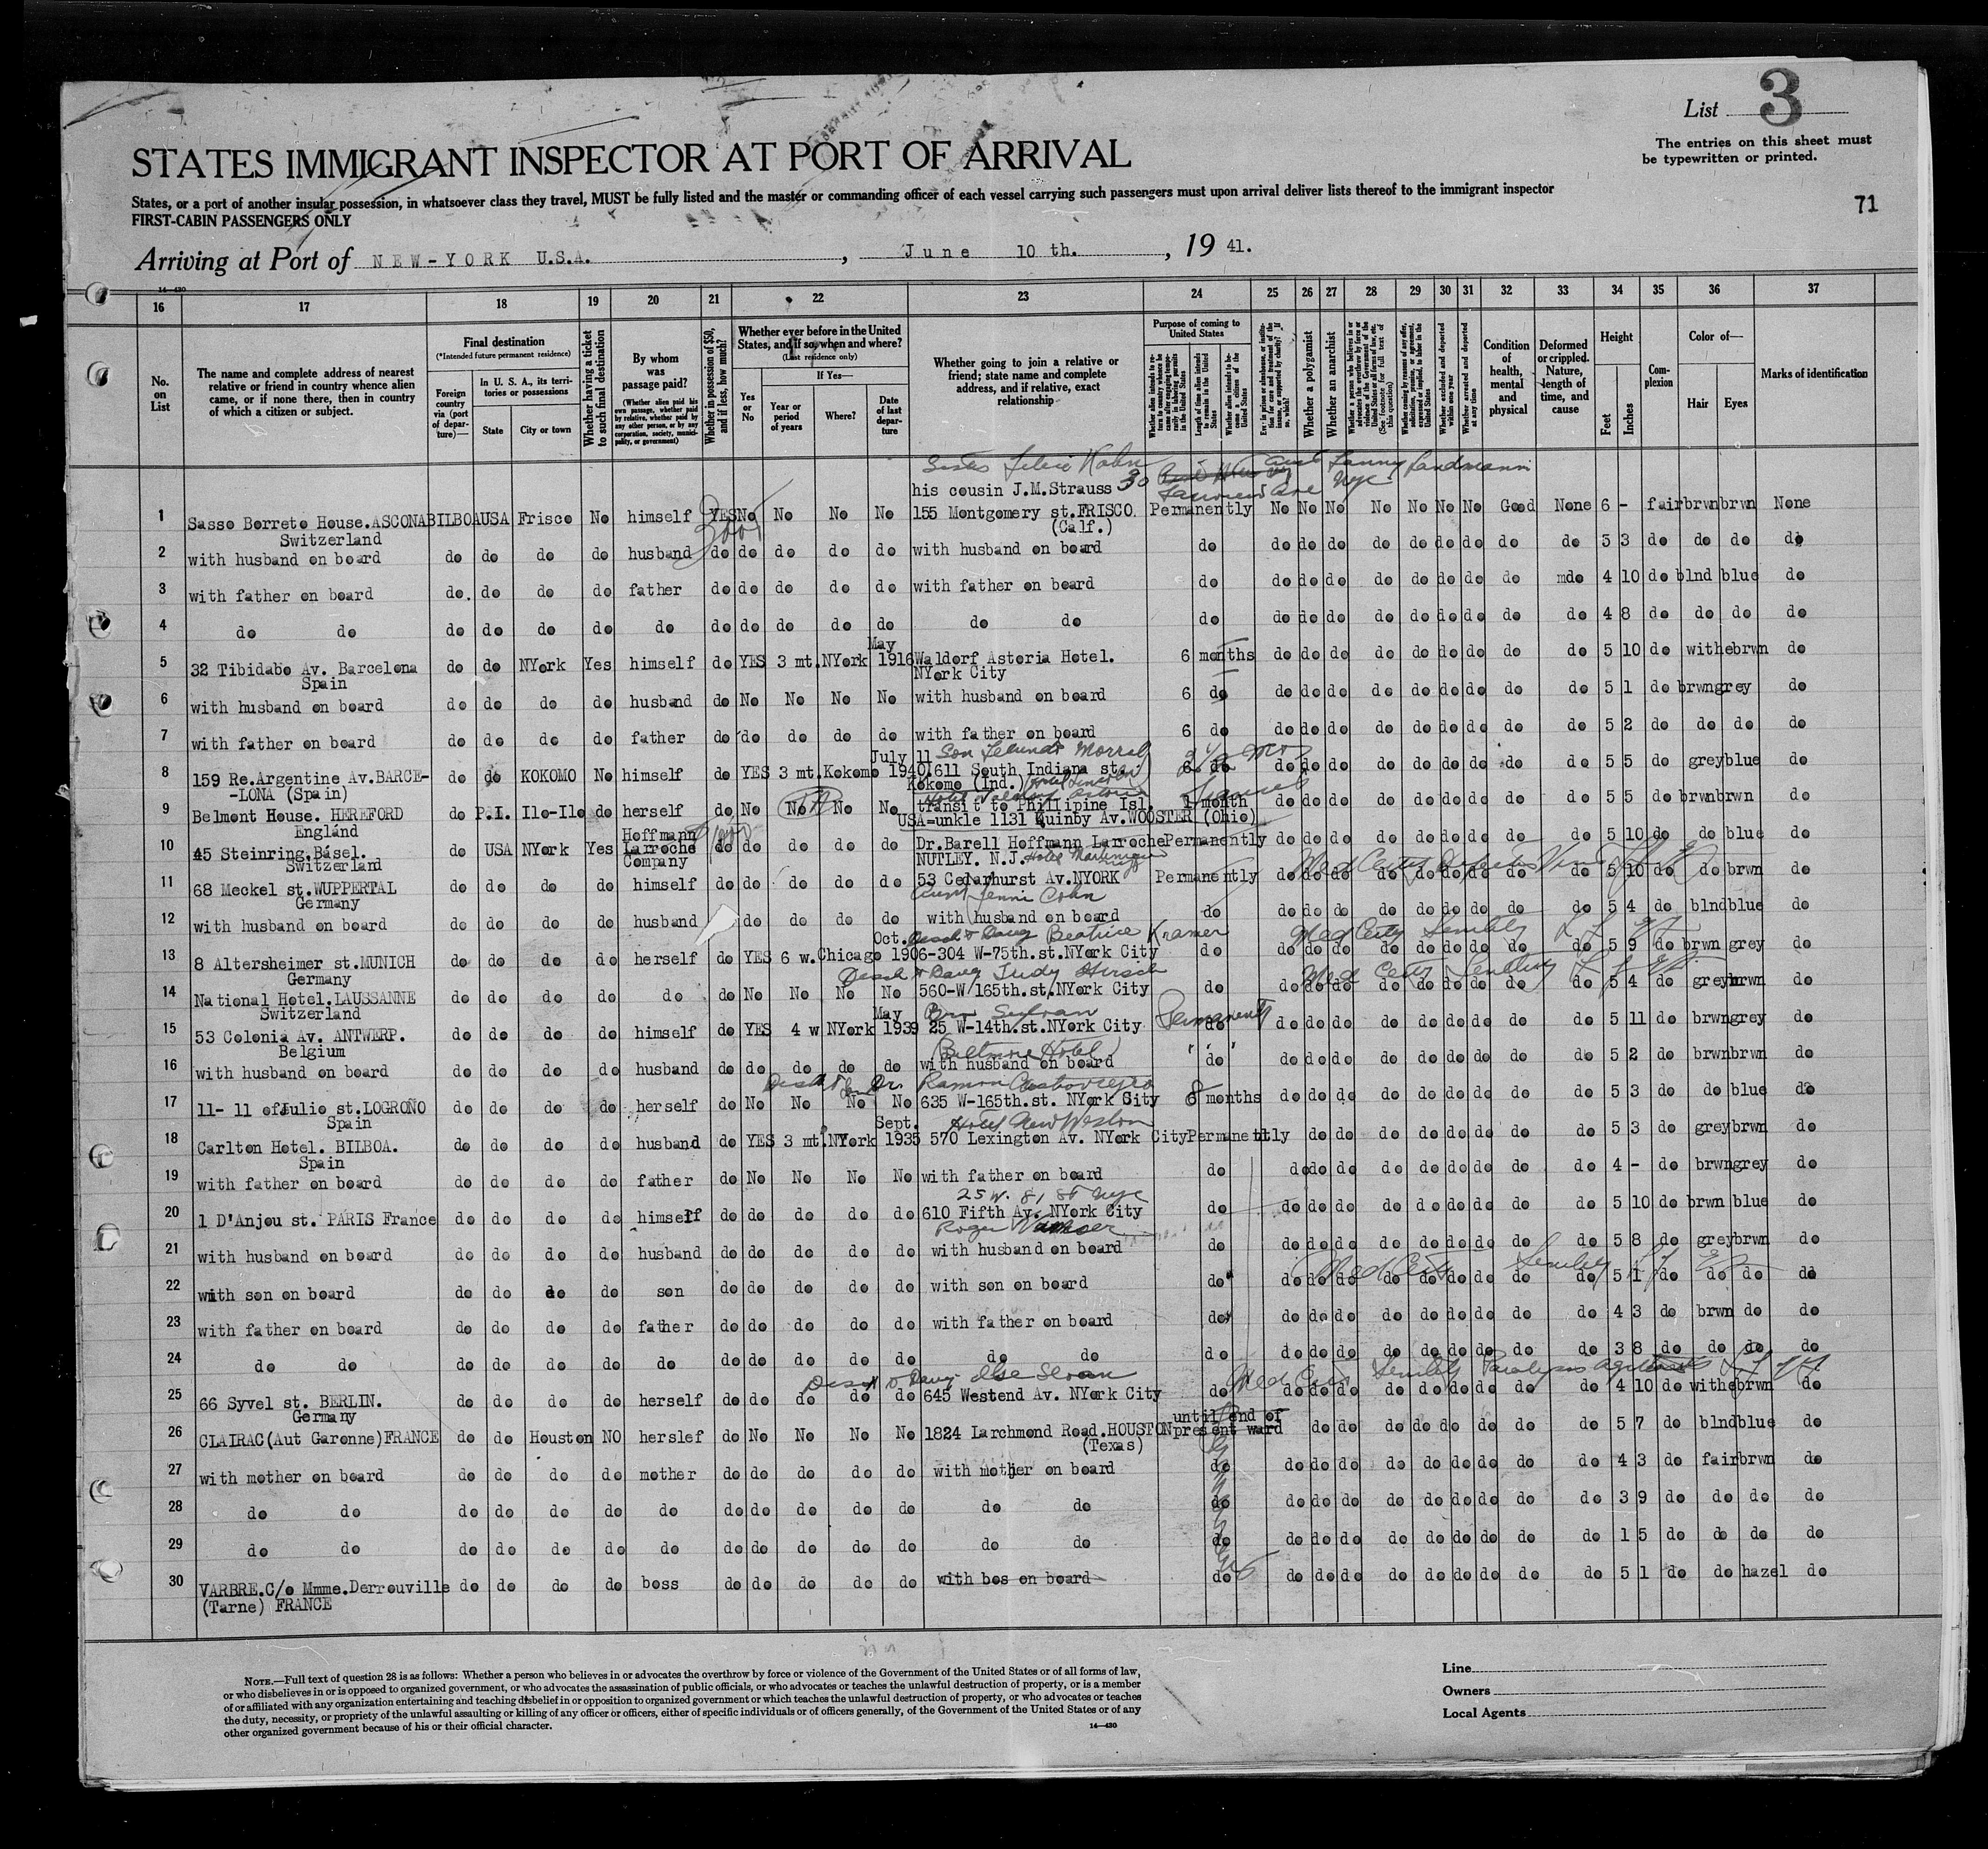 List 3
The entries on this sheet must
be typewritten or printed.
STATES IMMIGRANT INSPECTOR AT PORT OF ARRIVAL
States, or a port of another insular possession, in whatsoever class they travel, MUST be fully listed and the master or commanding officer of each vessel carrying such passengers must upon arrival deliver lists thereof to the immigrant inspector
FIRST-CABIN PASSENGERS ONLY
71
Arriving at Port of NEW-YORK U.S.A. , June 10 th. , 19 41.
14—430
16 17 18 19 20 21 22 23 24 25 26 27 28 29 30 31 32 33 34 35 36 37
No. on List
The name and complete address of nearest relative or friend in country whence alien came, or if none there, then in country of which a citizen or subject.
Final destination
(*Intended future permanent residence)
Foreign country via (port of departure)—
In U. S. A., its territories or possessions
State
City or town
Whether having a ticket to such final destination
By whom was passage paid?
(Whether alien paid his own passage, whether paid by relative, whether paid by any other person, or by any corporation, society, municipality, or government)
Whether in possession of $50, and if less, how much?
Whether ever before in the United States, and if so, when and where?
(Last residence only)
If Yes—
Yes or No
Year or period of years
Where?
Date of last departure
Whether going to join a relative or friend; state name and complete address, and if relative, exact relationship
Purpose of coming to United States
Length of time alien intends to remain in the United States
Whether alien intends to become a citizen of the United States
Whether a polygamist
Whether an anarchist
Whether excluded and deported within one year
Whether arrested and deported at any time
Condition of health, mental and physical
Deformed or crippled. Nature, length of time, and cause
Height
Feet
Inches
Complexion
Color of—
Hair
Eyes
Marks of identification
aunt Fanny Landmann
his cousin J.M.Strauss
1 Sasso Borreto House.ASCONA BILBOA USA Frisco No himself YES No No No No 155 Montgomery st.FRISCO Permanently No No No No No No No Good None 6 - fair brwn brwn None
Switzerland (Calf.)
2 with husband on board do do do do husband do do do do do with husband on board do do do do do do do do do do 5 3 do do do do
3 with father on board do. do do do father do do do do do with father on board do do do do do do do do do mdo 4 10 do blnd blue do
4 do do do do do do do do do do do do do do do do do do do do do do do do 4 8 do do do do
May
5 32 Tibidabo Av. Barcelona do do NYork Yes himself do YES 3 mt. NYork 1916 Waldorf Astoria Hotel. 6 months do do do do do do do do do 5 10 do withe brwn do
Spain NYork City
6 with husband on board do do do do husband do No No No No with husband on board 6 do do do do do do do do do do 5 1 do brwn grey do
7 with father on board do do do do father do do do do do with father on board 6 do do do do do do do do do do 5 2 do do do do
July 11
8 159 Re.Argentine Av.BARCE- do do KOKOMO No himself do YES 3 mt. Kokomo 1940. 611 South Indiana st. 6 do do do do do do do do do do 5 5 do grey blue do
-LONA (Spain) Kokomo (Ind.)
9 Belmont House. HEREFORD do P.I. Ilo-Ilo do herself do No No No No transit to Phillipine Isl. 1 month do do do do do do do do do 5 5 do brwn brwn do
England USA=unkle 1131 Quinby Av.WOOSTER (Ohio)
10 45 Steinring.Básel. do USA NYork Yes Hoffmann Larroche Company do do do do do Dr.Barell Hoffmann Larroche Permanently do do do do do do do do do 5 10 do do blue do
Switzerland NUTLEY. N.J.
11 68 Meckel st.WUPPERTAL do do do do himself do do do do do 53 Cedarhurst Av.NYORK Permanently do do do do do do do do do 5 10 do do brwn do
Germany Aunt Jenni Cohn
12 with husband on board do do do do husband do do do do with husband on board do do do do do do do do do do 5 4 do blnd blue do
Oct. Daug Beatrice Kramer Med Cert Senility
13 8 Altersheimer st.MUNICH do do do do herself do YES 6 w. Chicago 1906- 304 W-75th.st.NYork City do do do do do do do do do do 5 9 do brwn grey do
Germany Daug Judy Hirsch Med Cert Senility
14 National Hotel.LAUSSANNE do do do do do do No No No No 560-W/165th.st.NYork City do do do do do do do do do do 5 4 do grey brwn do
Switzerland May
15 53 Colonia Av. ANTWERP. do do do do himself do YES 4 w NYork 1939 25 W-14th.st.NYork City Permanent do do do do do do do do do do 5 11 do brwn grey do
Belgium (Biltmore Hotel)
16 with husband on board do do do do husband do do do do do with husband on board do do do do do do do do do do 5 2 do brwn brwn do
17 11- 11 ofJulio st.LOGROÑO do do do do herself do No No No No 635 W-165th.st. NYork City 8 months do do do do do do do do do 5 3 do do blue do
Spain Sept. Hotel New Weston
18 Carlton Hotel. BILBOA. do do do do husband do YES 3 mt. NYork 1935 570 Lexington Av. NYork City Permanently do do do do do do do do 5 3 do grey brwn do
Spain
19 with father on board do do do do father do No No No No with father on board do do do do do do do do do do 4 - do brwn grey do
25 W. 81 St NYC
20 1 D'Anjou st. PARIS France do do do do himself do do do do do 610 Fifth Av. NYork City do do do do do do do do do do 5 10 do brwn blue do
Roger
21 with husband on board do do do do husband do do do do do with husband on board do do do do do do do do do do 5 8 do grey brwn do
Med Cert
22 with son on board do do do do son do do do do do with son on board do do do do do do do do do do 5 1 do do do do
23 with father on board do do do do father do do do do do with father on board do do do do do do do do do do 4 3 do brwn do do
24 do do do do do do do do do do do do do do do do do do do do do do do do 3 8 do do do do
Daug Ilse Sloan Med Cert Senility Paralysis agitans
25 66 Syvel st. BERLIN. do do do do herself do do do do do 645 Westend Av. NYork City do do do do do do do do do do 4 10 do withe brwn do
Germany until end of
26 CLAIRAC(Aut Garonne)FRANCE do do Houston NO herslef do No No No No 1824 Larchmond Road.HOUSTON present ward do do do do do do do do 5 7 do blnd blue do
(Texas)
27 with mother on board do do do do mother do do do do do with mother on board do do do do do do do do do do 4 3 do fair brwn do
28 do do do do do do do do do do do do do do do do do do do do do do do do 3 9 do do do do
29 do do do do do do do do do do do do do do do do do do do do do do do do 1 5 do do do do
30 VARBRE.C/o Mmme.Derrouville do do do do boss do do do do do with bos on board do do do do do do do do do do 5 1 do do hazel do
(Tarne) FRANCE
NOTE.—Full text of question 28 is as follows: Whether a person who believes in or advocates the overthrow by force or violence of the Government of the United States or of all forms of law,
or who disbelieves in or is opposed to organized government, or who advocates the assassination of public officials, or who advocates or teaches the unlawful destruction of property, or is a member
of or affiliated with any organization entertaining and teaching disbelief in or opposition to organized government or which teaches the unlawful destruction of property, or who advocates or teaches
the duty, necessity, or propriety of the unlawful assaulting or killing of any officer or officers, either of specific individuals or of officers generally, of the Government of the United States or of any
other organized government because of his or their official character.
14—430
Line
Owners
Local Agents